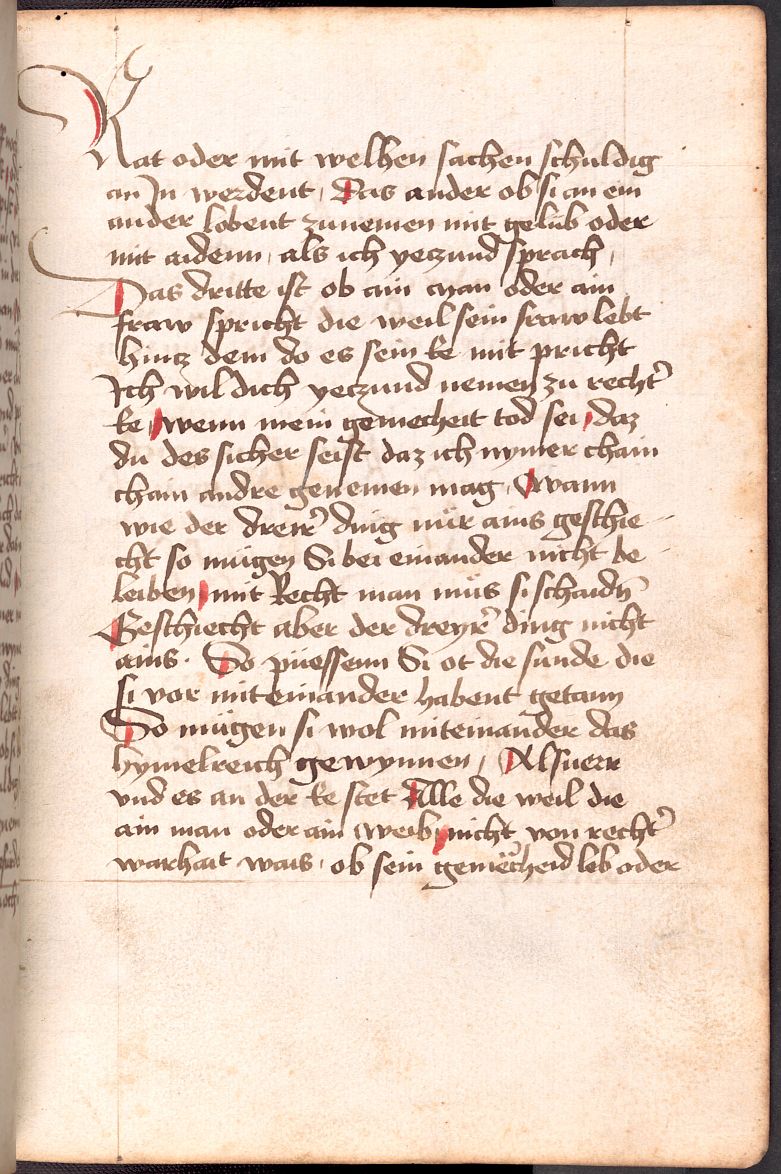 Rat oder mit welhen sachen schuldig
an In werdent, Das ander ob si an ein
ander lobent zunemen mit gelub oder
mit aidenn, als ich yeczund sprach,
Das dritte ist ob ain man oder ain
fraw spricht die weil sein fraw lebt
hincz dem do es sein Ee mit pricht
Ich wil dich yeczund nemen zu recht̾
Ee, wenn mein gemecheit tod sei, daz
du des sicher seist daz ich nymer chain
chain andre genemen mag, Swann
wie der dreyr̾ ding nür ains geschie-
cht so mügen Si bei einander nicht be-
leiben, mit Recht man müs si schaidn̄
Geschiecht aber der dreyr̾ ding nicht
ains. So püessenn Si ot die sunde die
si vor miteinander habent getann
So mügen si wol miteinander das
hymelreich gewynnen, Alsuerr
vnd es an der Ee stet Alle die weil die
ain man oder ain weib, nicht von recht̾
warhait wais, ob sein gemëcheid leb oder